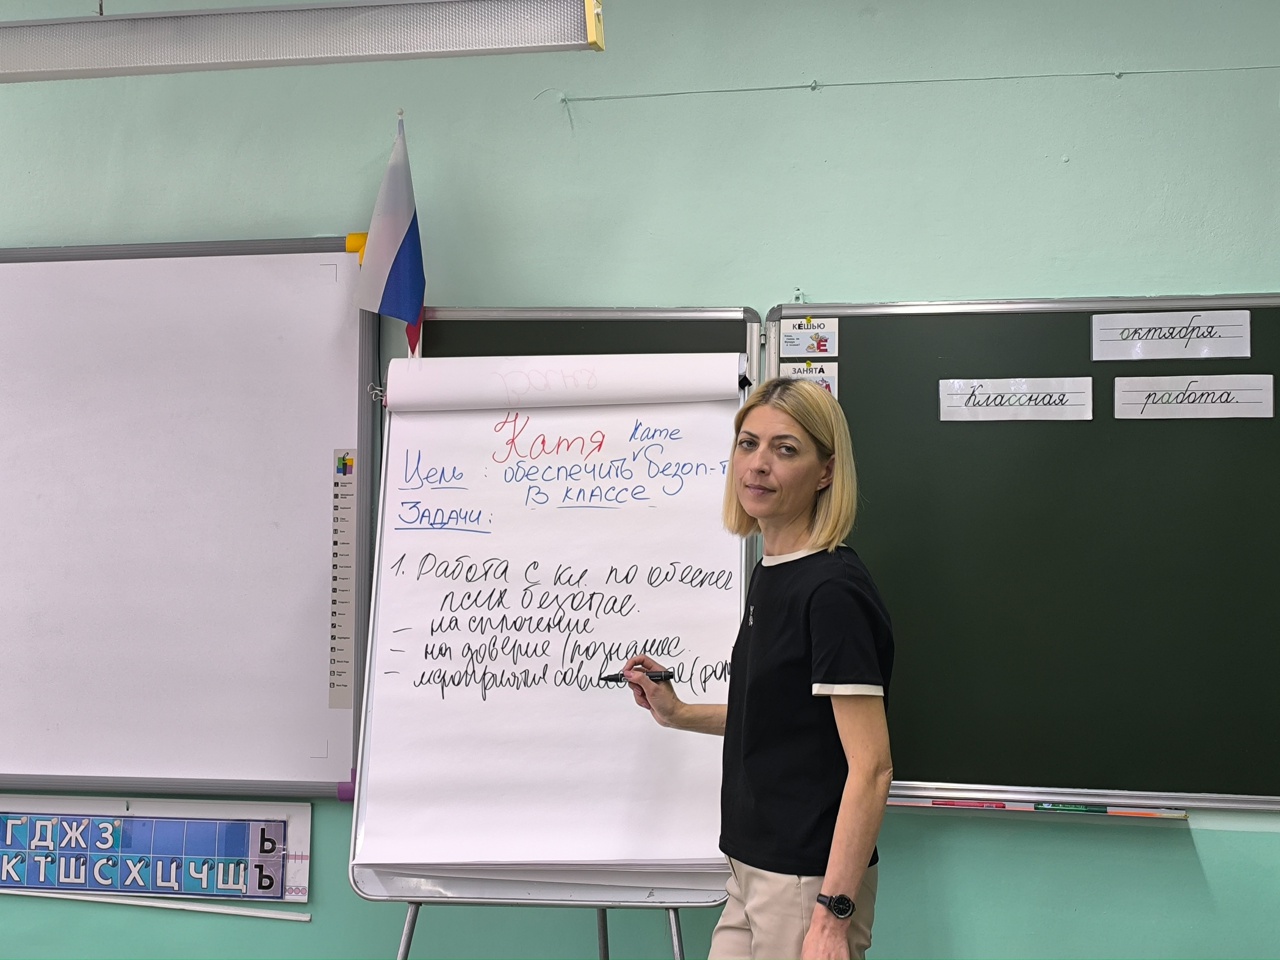 Катя
Кате
Цель: обеспечить безоп-т
в классе
Задачи:
1. Работа с кл. по обеспеч
псих безопас.
- на сплочение
- на доверие/познание
- мероприятия (ро
КЕ́ШЬЮ
Ё
ЗАНЯТА́
октября.
Классная работа.
Г Д Ж З Ь
К Т Ш С Х Ц Ч Щ Ъ